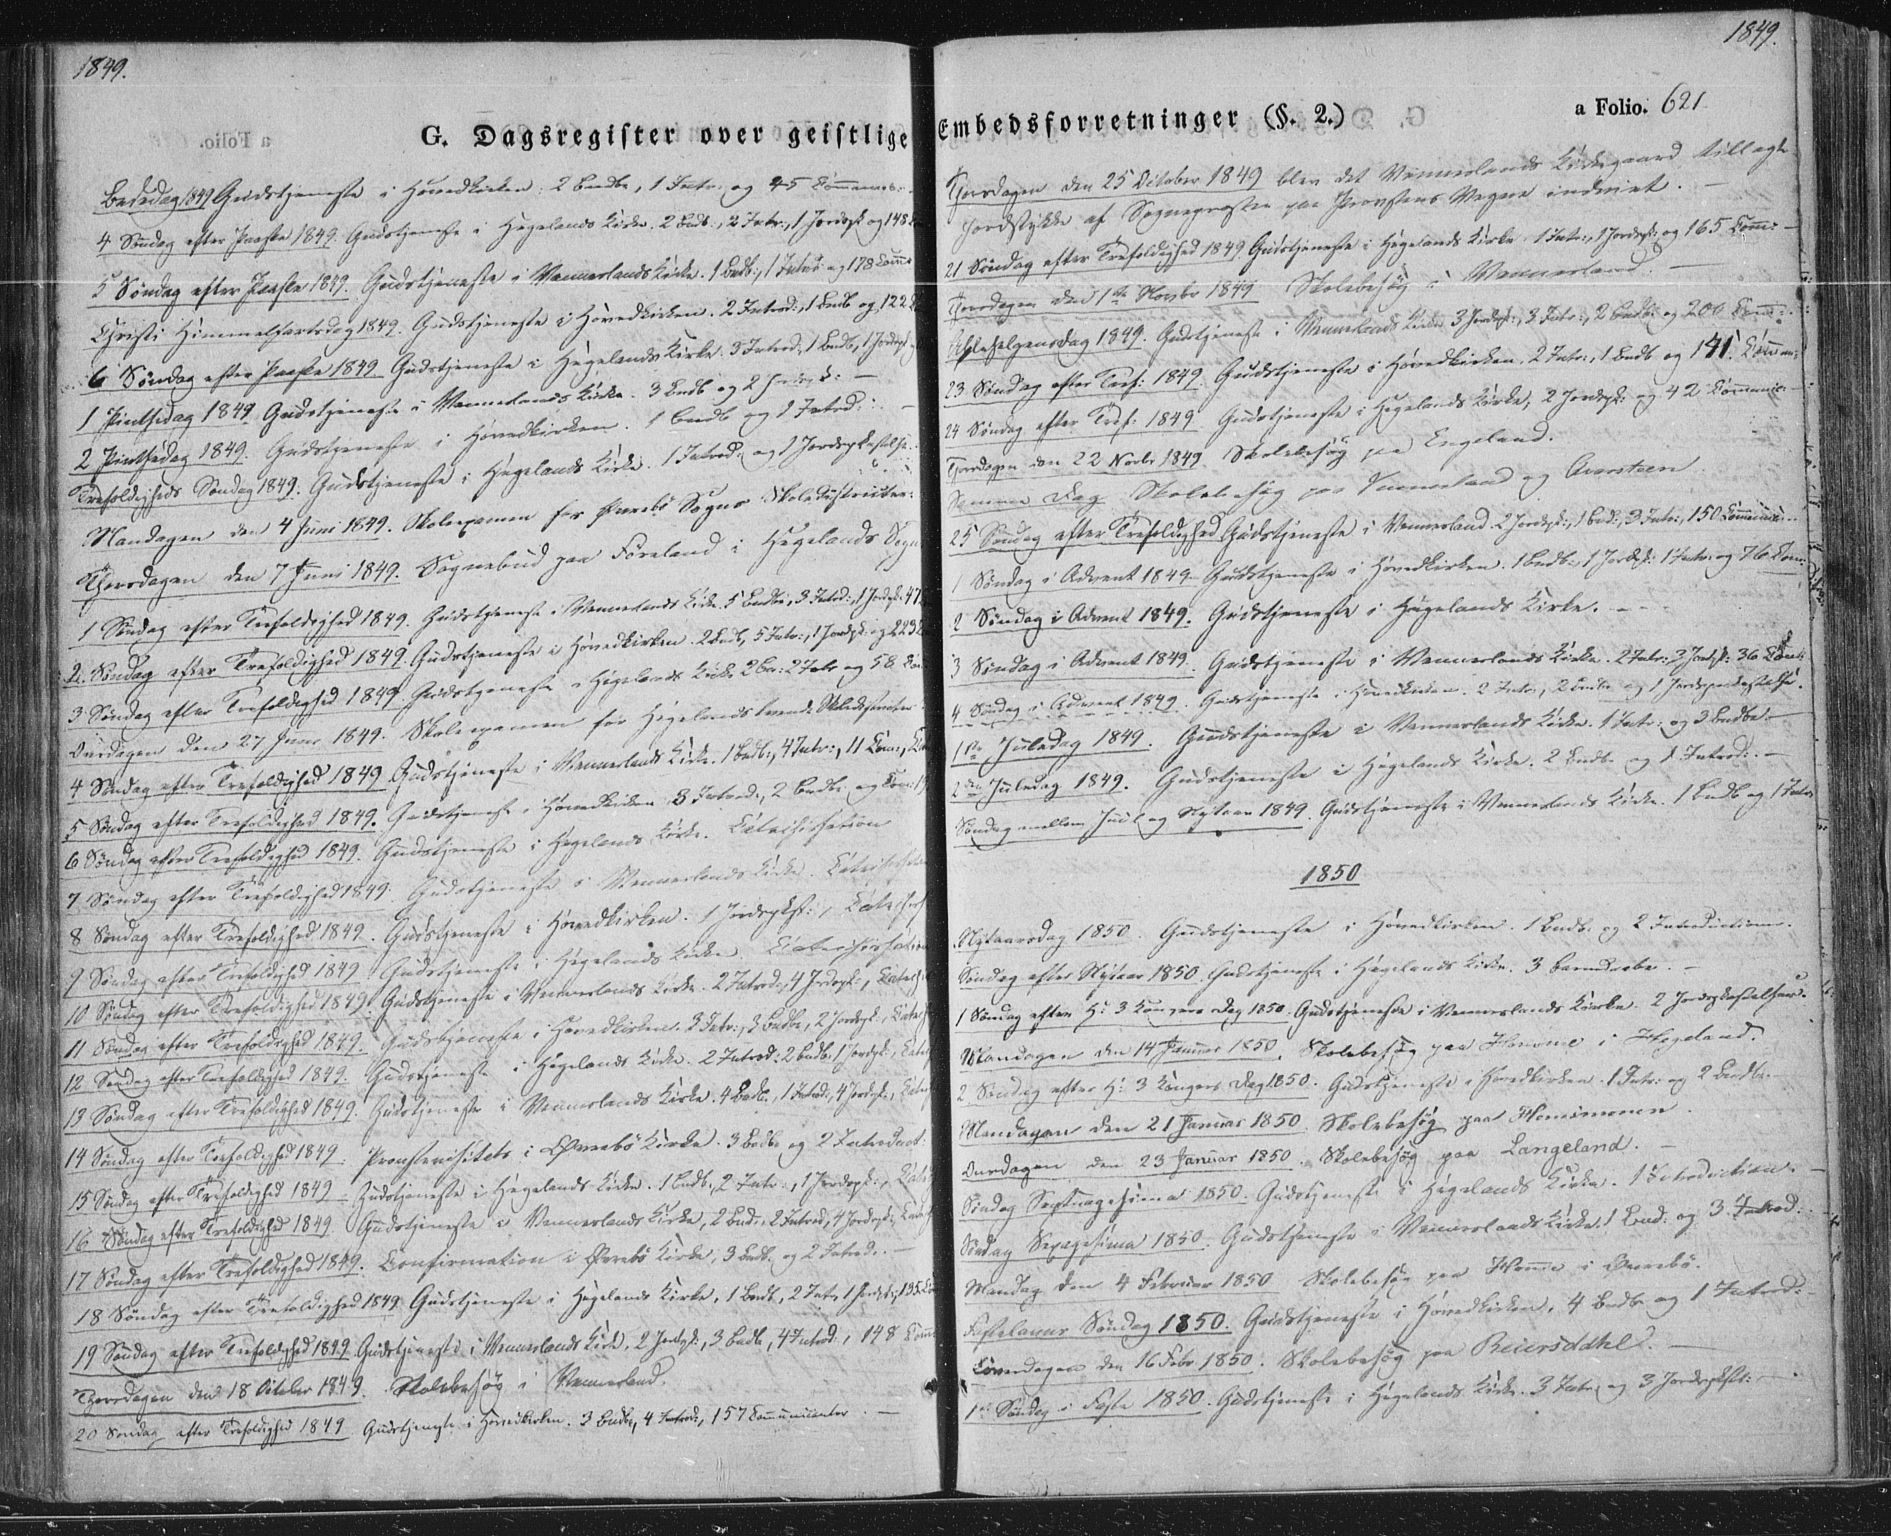 1849.
G. Dagsregister over geistlige
Bededag 1849 Gudstjeneste i Hovedkirken. 2 Barnd:, 1 Intr: og 45 Communic:
4 Søndag efter Paaske 1849. Gudstjeneste i Hegelands Kirke. 2 Barnd:, 2 Intr:, 1 Jordspk og 148
5 Søndag efter Paaske 1849. Gudstjeneste i Vennerlands Kirke. 1 Barnd:, 1 Introd og 178 Comm
Christi Himmelfartsdag 1849. Gudstjeneste i Hovedkirken. 2 Introd:, 1 Barnd og 122
6 Søndag efter Paaske 1849 Gudstjeneste i Hegelands Kirke. 3 Introd:, 1 Barnd:, 1 Jordspk
1 Pintsedag 1849 Gudstjeneste i Vennerlands Kirke. 3 Barnd og 2 Jordspk: –
2 Pintsedag 1849. Gudstjeneste i Hovedkirken. 1 Barnd og 1 Introd: –
Trefoldigheds Søndag 1849. Gudstjeneste i Hegelands Kirke. 1 Introd: og 1 Jordspkastelse.
Mandagen den 4 Juni 1849. Skoleexamen for Øvrebø Sogns Skoledistricter.
Thorsdagen den 7 Juni 1849. Sognebud paa Føreland i Hegelands Sogn
1 Søndag efter Trefoldighed 1849. Gudstjeneste i Vennerlands Kirke. 5 Barnd:, 3 Introd:, 1 Jordspk: 47
2. Søndag efter Trefoldighed 1849. Gudstjeneste i Hovedkirken. 2 Barnd, 5 Intr:, 1 Jordspk: og 223
3 Søndag efter Trefoldighed 1849 Gudstjeneste i Hegelands Kirke 2 Bar: 2 Intr og 58 Com:
Onsdagen den 27 Juni 1849. Skoleexamen for Hegelands Skoledistricter
4 Søndag efter Trefoldighed 1849 Gudstjeneste i Vennerlands Kirke. 1 Barnd:, 4 Intr:, 11 Com:,
5 Søndag efter Trefoldighed 1849. Gudstjeneste i Hovedkirken 3 Introd:, 2 Barnd: og Com:
6 Søndag efter Trefoldighed 1849. Gudstjeneste i Hegelands Kirke. Catechisation
7 Søndag efter Trefoldighed 1849. Gudstjeneste i Vennerlands Kirke. Catechisation
8 Søndag efter Trefoldighed 1849. Gudstjeneste i Hovedkirken. 1 Jordspkst:, Catechis
9 Søndag efter Trefoldighed 1849 Gudstjeneste i Hegelands Kirke. Catechisation
10 Søndag efter Trefoldighed 1849. Gudstjeneste i Vennerlands Kirke. 2 Introd:, 4 Jordspk:, Catech
11 Søndag efter Trefoldighed 1849. Gudstjeneste i Hovedkirken. 3 Intr:, 3 Barnd:, 2 Jordspk:, Catech
12 Søndag efter Trefoldighed 1849. Gudstjeneste i Hegelands Kirke. 2 Introd: 2 Barnd: 1 Jordspk:, Catech
13 Søndag efter Trefoldighed 1849. Gudstjeneste i Vennerlands Kirke. 4 Barnd:, 1 Introd:, 4 Jordspk:, Catech
14 Søndag efter Trefoldighed 1849. Provstevisitats i Øvrebø Kirke. 3 Barnd: og 2 Introduct:
15 Søndag efter Trefoldighed 1849 Gudstjeneste i Hegelands Kirke. 1 Barnd:, 2 Intr:, 1 Jordspk:, Catech
16 Søndag efter Trefoldighed 1849. Gudstjeneste i Vennerlands Kirke, 2 Barnd:, 2 Introd, 4 Jordspk:, Catech
17 Søndag efter Trefoldighed 1849. Confirmation i Øvrebø Kirke, 3 Barnd: og 2 Introd: –
18 Søndag efter Trefoldighed 1849 Gudstjeneste i Hegelands Kirke, 1 Barnd, 2 Intr, 1 Jordspk:, 135 Co
19 Søndag efter Trefoldighed 1849 Gudstjeneste i Vennerlands Kirke, 2 Jordspk:, 3 Barnd, 4 Introd:, 148 Comm
Thorsdagen den 18 October 1849. Skolebesøg i Vennerland.
20 Søndag efter Trefoldighed 1849 Gudstjeneste i Hovedkirken. 3 Barnd:, 4 Introd:, 157 Communicanter. –
1849.
Embedsforretninger (§. 2.)
a Folio. 621
Thorsdagen den 25 October 1849 blev det Vennerlands Kirkegaard tillagte
Jordstykke af Sognepresten paa Provstens Vegne indviet. –
21 Søndag efter Trefoldighed 1849 Gudstjeneste i Hegelands Kirke 1 Intr:, 1 Jordspk: og 165 Comm: –
Thorsdagen den 1ste Novbr 1849 Skolebesøg i Vennerland. –
Allehelgensdag 1849. Gudstjeneste i Vennerlands Kirke 3 Jordspk:, 3 Intr:, 2 Barnd: og 200 Comm:
23 Søndag efter Tref: 1849. Gudstjeneste i Hovedkirken. 2 Intr:, 1 Barnd og 141 Comm:
24 Søndag efter Tref: 1849 Gudstjeneste i Hegelands Kirke, 2 Jordspk: og 42 Communic: –
Thorsdagen den 22 Novbr 1849 Skolebesøg paa Engeland.
Samme Dag Skolebesøg paa Vennerland og Aversteen
25 Søndag efter Trefoldighed Gudstjeneste i Vennerland 2 Jordspk:, 1 Barnd:, 3 Intr:, 150 Communic: –
1 Søndag i Advent 1849 Gudstjeneste i Hovedkirken. 1 Barnd:, 1 Jordspk: 1 Intr: og 76 Comm:
2 Søndag i Advent 1849. Gudstjeneste i Hegelands Kirke. – –
3 Søndag i Advent 1849. Gudstjeneste i Vennerlands Kirke. 2 Intr: 3 Jordspk: 36 Com:
4 Søndag i Advent 1849. Gudstjeneste i Hovedkirken. 2 Intr:, 2 Barnd: og 1 Jordspaakastelse.
1ste Juledag 1849. Gudstjeneste i Vennerlands Kirke. 1 Intr: og 3 Barndb: –
2den Juledag 1849. Gudstjeneste i Hegelands Kirke. 2 Barnd: og 1 Introd: –
Søndag mellem Juul og Nytaar 1849. Gudstjeneste i Vennerlands Kirke. 1 Barnd og 1 Intr
1850
Nytaarsdag 1850. Gudstjeneste i Hovedkirken. 1 Barnd: og 2 Introductioner.
Søndag efter Nytaar 1850. Gudstjeneste i Hegelands Kirke. 3 Barnedaabe. –
1 Søndag efter H: 3 Kongers Dag 1850. Gudstjeneste i Vennerlands Kirke. 2 Jordspkastelser.
Mandagen den 14 Januar 1850. Skolebesøg paa Homme i Hegeland.
2 Søndag efter H: 3 Kongers Dag 1850. Gudstjeneste i Hovedkirken. 1 Intr: og 2 Barndb:
Mandagen den 21 Januar 1850. Skolebesøg paa
Onsdagen den 23 Januar 1850. Skolebesøg paa Langeland. –
Søndag Septuagesima 1850. Gudstjeneste i Hegelands Kirke. 1 Introduction. –
Søndag Sexagesima 1850. Gudstjeneste i Vennerlands Kirke. 1 Barnd: og 3 Introd: –
Mandag den 4 Februar 1850 Skolebesøg paa Homme i Øvrebø.
Fastelavns Søndag 1850. Gudstjeneste i Hovedkirken, 4 Barnd: og 1 Introd: –
Løverdagen den 16 Febr. 1850. Skolebesøg paa Reiersdahl. –
1ste Søndag i Faste 1850. Gudstjeneste i Hegelands Kirke. 3 Intr: og 3 Jordspkst: –